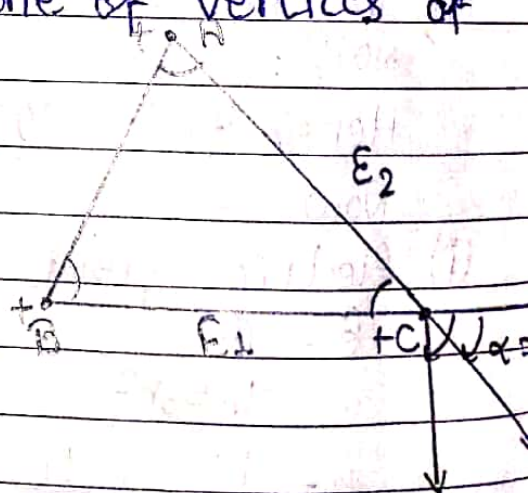 one of vertices of
+ A
E2
+
B
E1
+C
α=